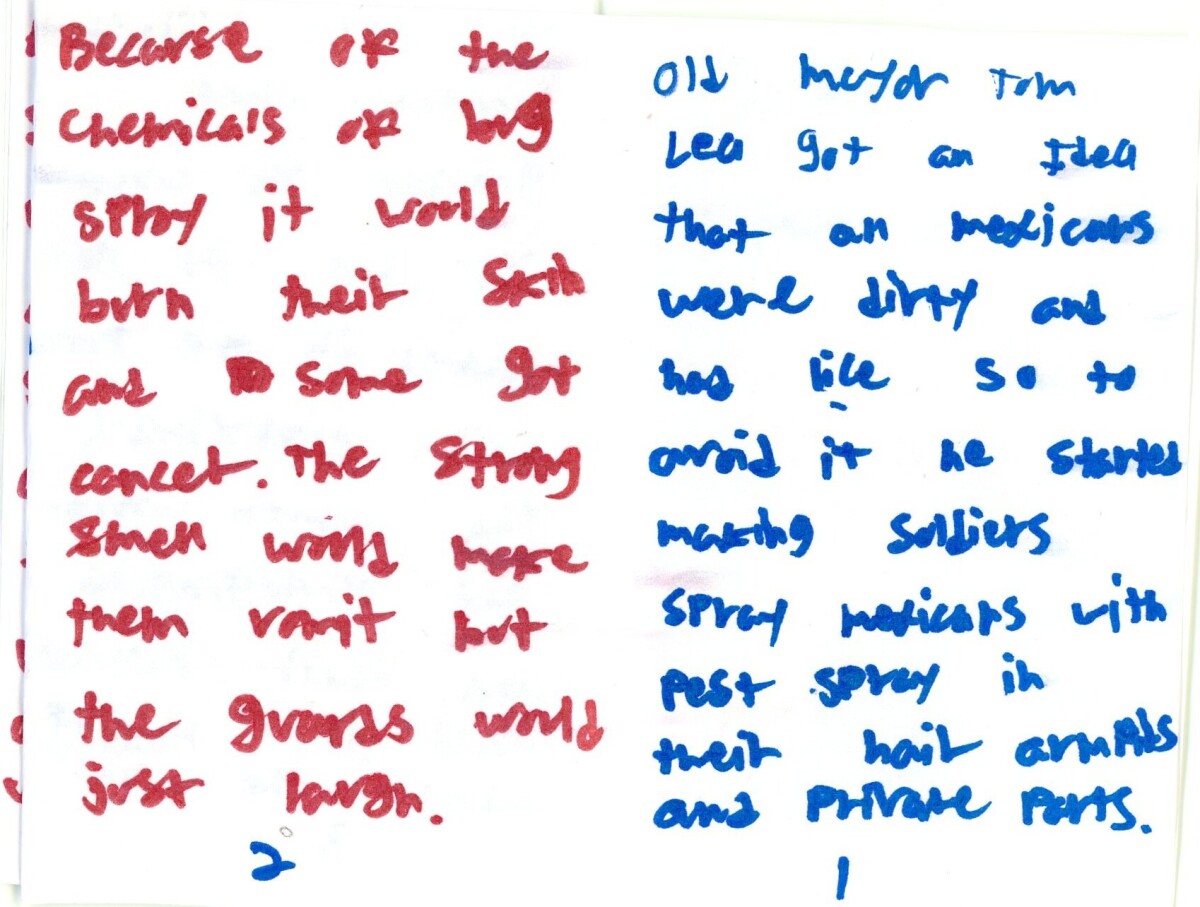 Old mayor Tom
Lea got an Idea
that all mexicans
were dirty and
had lice so to
avoid it he started
making soldiers
spray mexicans with
pest spray in
their hair armpits
and private parts.
1
Because of the
chemicals of bug
spray it would
burn their skin
and some got
cancer. The strong
smell would make
them vomit but
the guards would
just laugh.
2